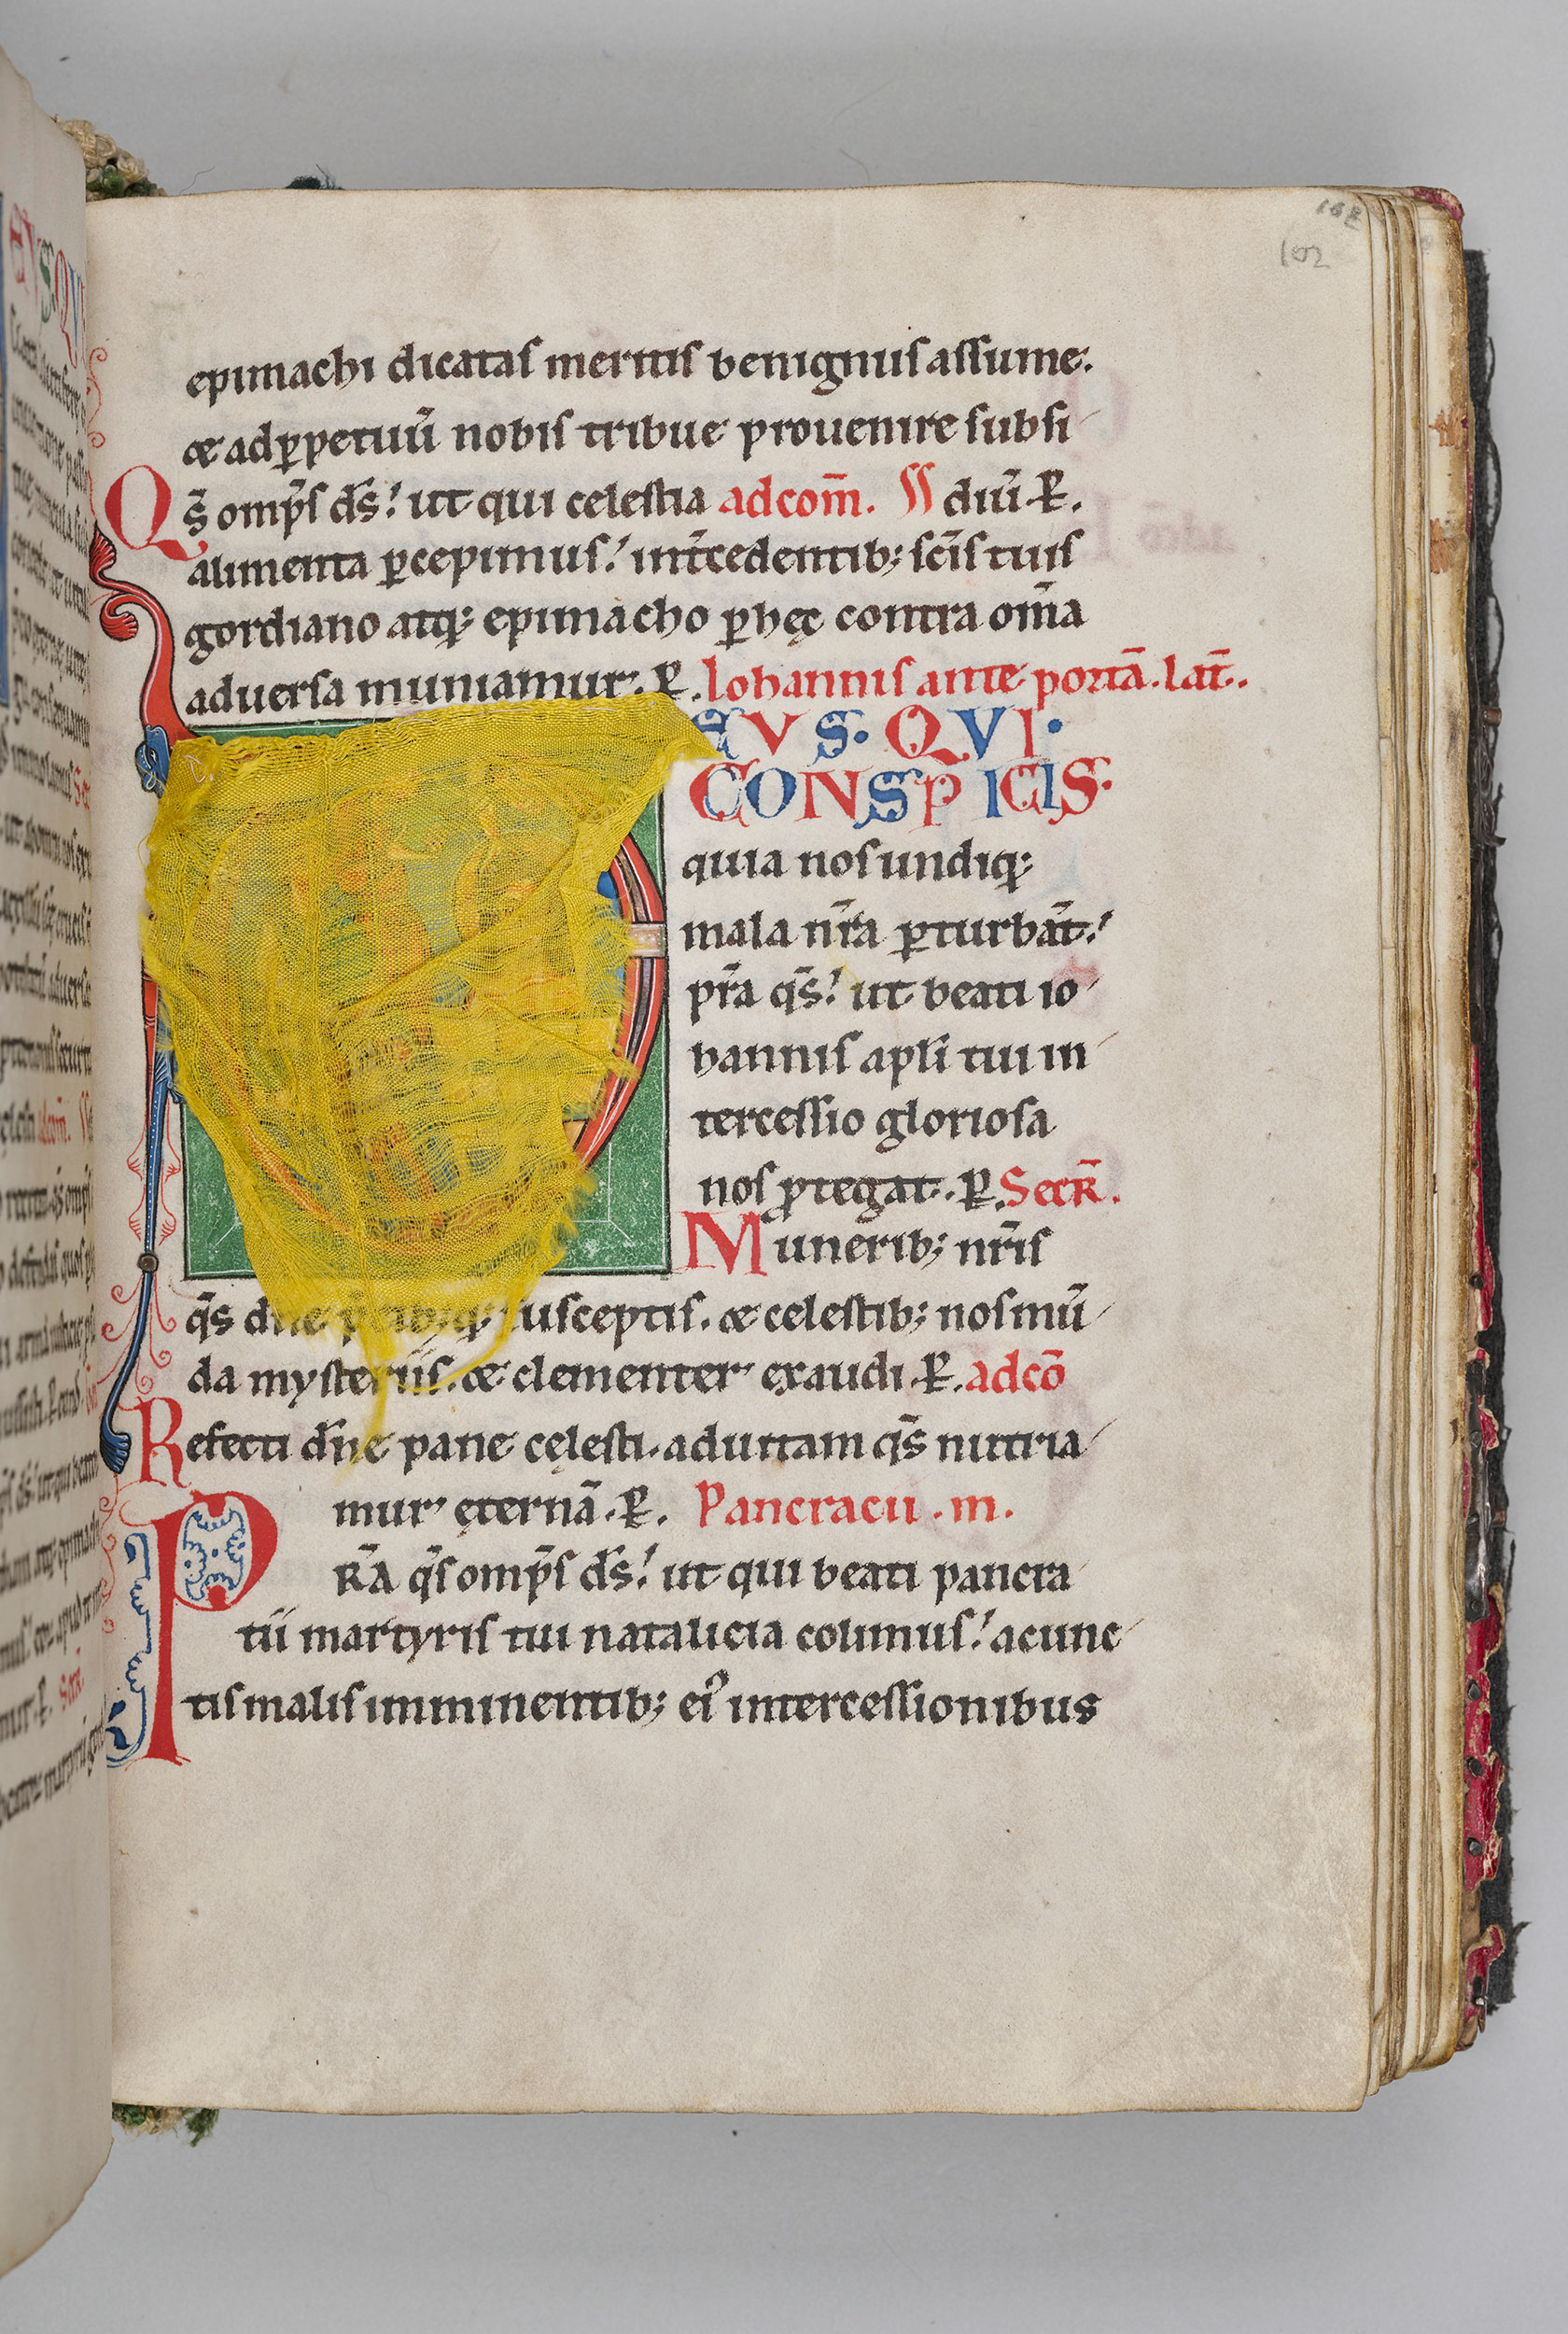 102
epimachi dicatas meritis benignus assume.
& adp̱petuū nobis tribue prouenire subsi
Qs̄ omp̄s ds̄! ut qui celestia adcom̄. diū. P̱.
alimenta p̱cepimus! int̄cedentib; sc̄is tuis
gordiano atq; epimacho p̱ hęc contra om̄a
aduersa muniamur. P̱. Iohannis ante portā. lat̄.
EVS. QVI.
CONSPICIS.
quia nos undiq;
mala nr̄a p̱turbāt!
pr̄a qs̄! ut beati io
hannis apli̅ tui in
tercessio gloriosa
nos ꝓtegat. P̱. Secr̄.
Munerib; nr̄is
qs̄ dn̄e susceptis. & celestib; nos mū
da mysteriis. & clementer exaudi. P̱. adcō
Refecti dn̄e pane cęlesti. aduitam qs̄ nutria
mur ęternā. P̱. Pancracii. m.
PR̄A qs̄ omp̄s ds̄! ut qui beati pancra
tii martyris tui natalicia colimus! acunc
tis malis imminentib; eiꝰ intercessionibus